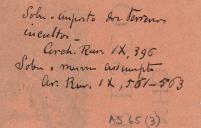 Sobre imposto dos terrenos
incultos —
Arch. Rur. IX, 396
Sobre o mesmo assumpto
Ar. Rur. IX, 561-563
AS 65 (3)